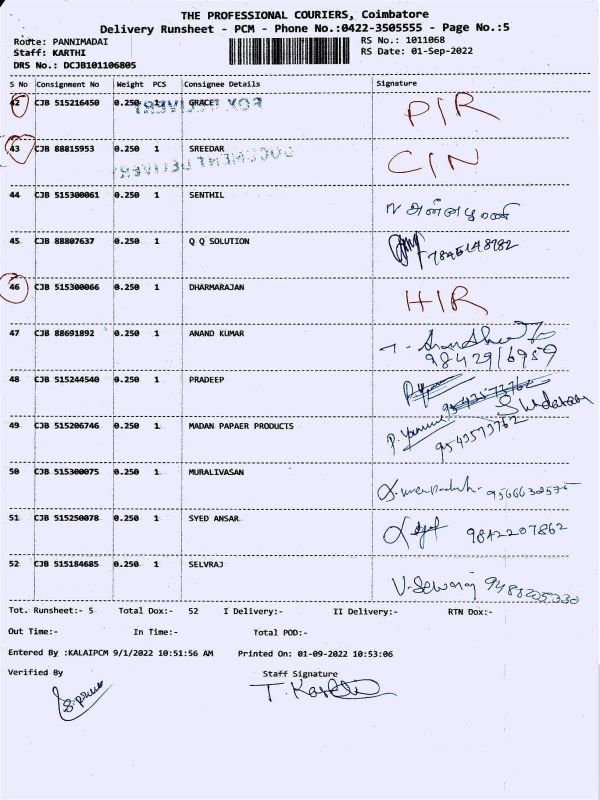 THE PROFESSIONAL COURIERS, Coimbatore
Delivery Runsheet - PCM - Phone No.:0422-3505555 - Page No.:5
Route: PANNIMADAI RS No.: 1011068
Staff: KARTHI RS Date: 01-Sep-2022
DRS No.: DCJB101106805
S No Consignment No Weight PCS Consignee Details Signature
42 CJB 515216450 0.250 1 GRACE P/R
FOX DELIVERY
43 CJB 88815953 0.250 1 SREEDAR C/N
DOCUMENT DELIVERY
44 CJB 515300061 0.250 1 SENTHIL அன்னபூரணி
45 CJB 88807637 0.250 1 Q Q SOLUTION
46 CJB 515300066 0.250 1 DHARMARAJAN H/R
47 CJB 88691892 0.250 1 ANAND KUMAR
9842916959
48 CJB 515244540 0.250 1 PRADEEP
49 CJB 515206746 0.250 1 MADAN PAPAER PRODUCTS
9543573762
50 CJB 515300075 0.250 1 MURALIVASAN
51 CJB 515250078 0.250 1 SYED ANSAR 9842207862
52 CJB 515184685 0.250 1 SELVRAJ V. Selvaraj 9488205330
Tot. Runsheet:- 5 Total Dox:- 52 I Delivery:- II Delivery:- RTN Dox:-
Out Time:- In Time:- Total POD:-
Entered By :KALAIPCM 9/1/2022 10:51:56 AM Printed On: 01-09-2022 10:53:06
Verified By Staff Signature
T. Karthi